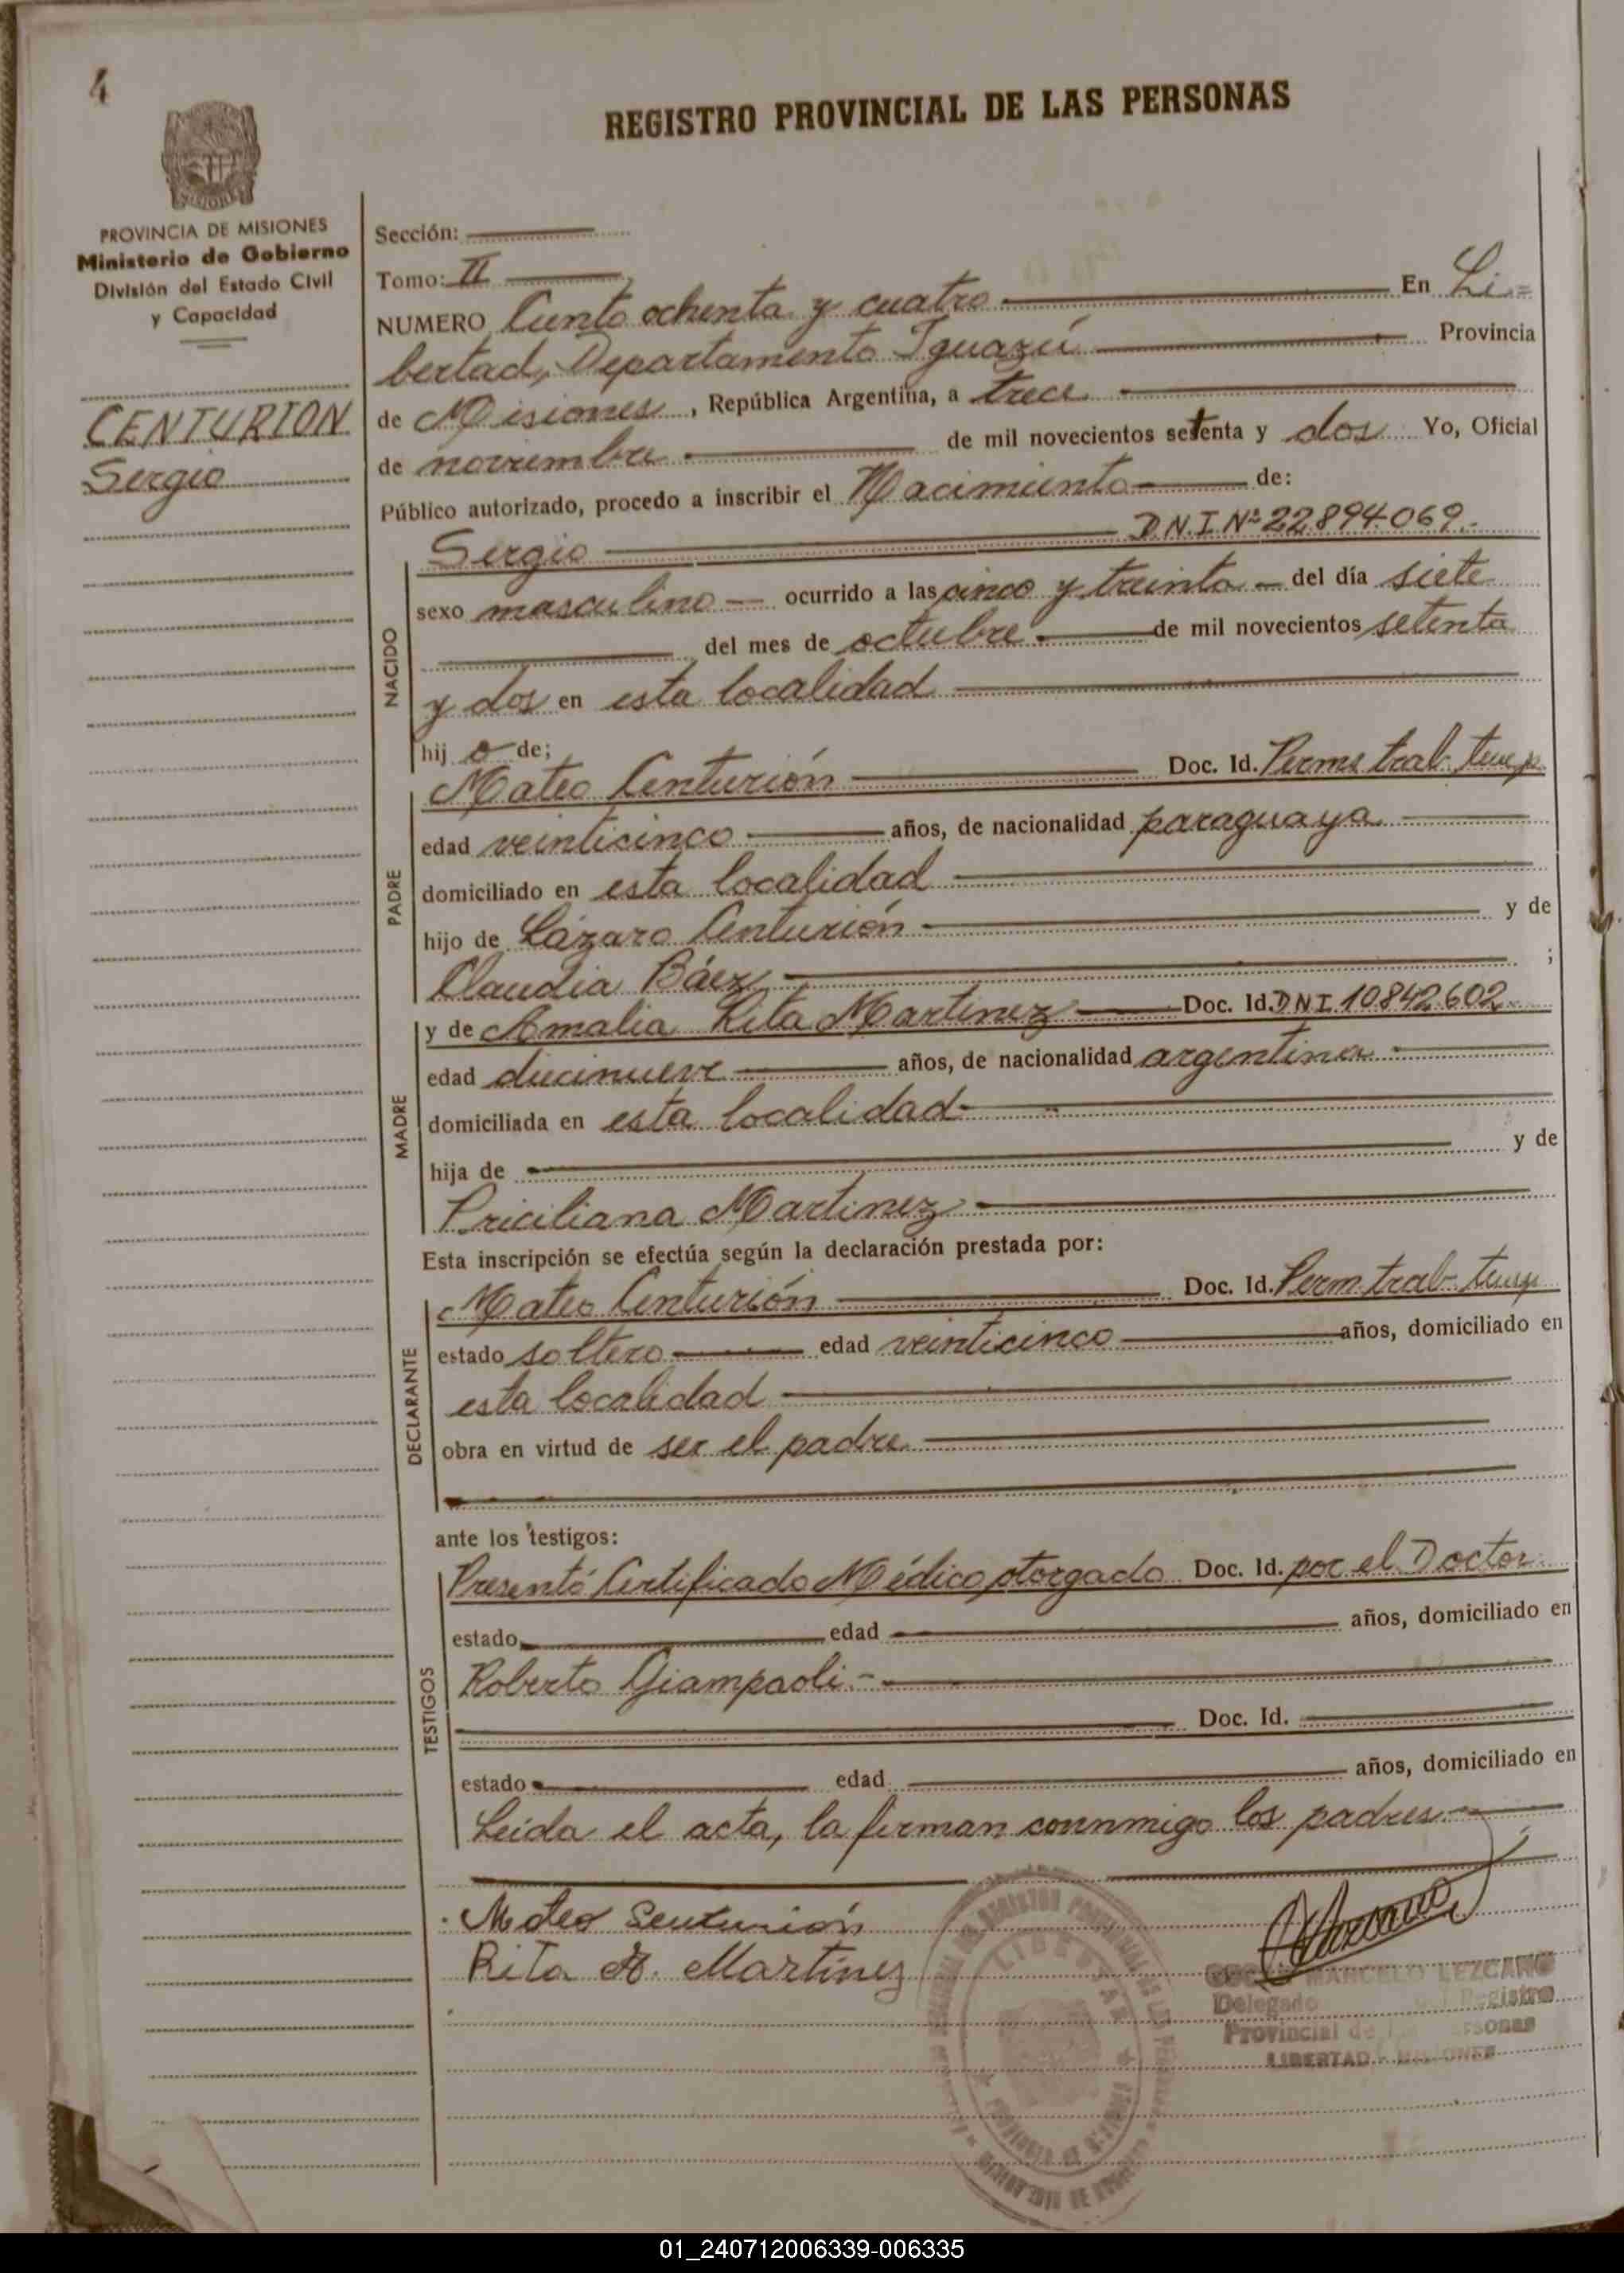 4
REGISTRO PROVINCIAL DE LAS PERSONAS
MISIONES
PROVINCIA DE MISIONES
Ministerio de Gobierno
División del Estado Civil
y Capacidad
CENTURION
Sergio
Sección:
Tomo: II
NUMERO Ciento ochenta y cuatro En Li=
bertad, Departamento Iguazú Provincia
de Misiones, República Argentina, a trece
de noviembre de mil novecientos setenta y dos Yo, Oficial
Público autorizado, procedo a inscribir el Nacimiento de:
NACIDO
Sergio D.N.I. Nº 22894.069.
sexo masculino ocurrido a las cinco y treinta del día siete
del mes de octubre de mil novecientos setenta
y dos en esta localidad
hij o de;
PADRE
Mateo Centurión Doc. Id. Perms trab. temp.
edad veinticinco años, de nacionalidad paraguaya
domiciliado en esta localidad
hijo de Lázaro Centurión y de
Claudia Báez ;
MADRE
y de Amalia Rita Martinez Doc. Id. DNI. 10.842.602
edad diecinueve años, de nacionalidad argentina
domiciliada en esta localidad
hija de y de
Priciliana Martinez
Esta inscripción se efectúa según la declaración prestada por:
DECLARANTE
Mateo Centurión Doc. Id. Perm. trab. temp
estado soltero edad veinticinco años, domiciliado en
esta localidad
obra en virtud de ser el padre
ante los testigos:
TESTIGOS
Presentó Certificado Médico otorgado Doc. Id. por el Doctor
estado edad años, domiciliado en
Roberto Giampaoli.-
Doc. Id.
estado edad años, domiciliado en
Leida el acta, la firman connmigo los padres.-
Mateo Senturión
Rita A. Martínez
MARCELO LEZCANO
Delegado Registro
Provincial de
LIBERTAD - MISIONES
LIBERTAD
PROVINCIA DE MISIONES
01_240712006339-006335